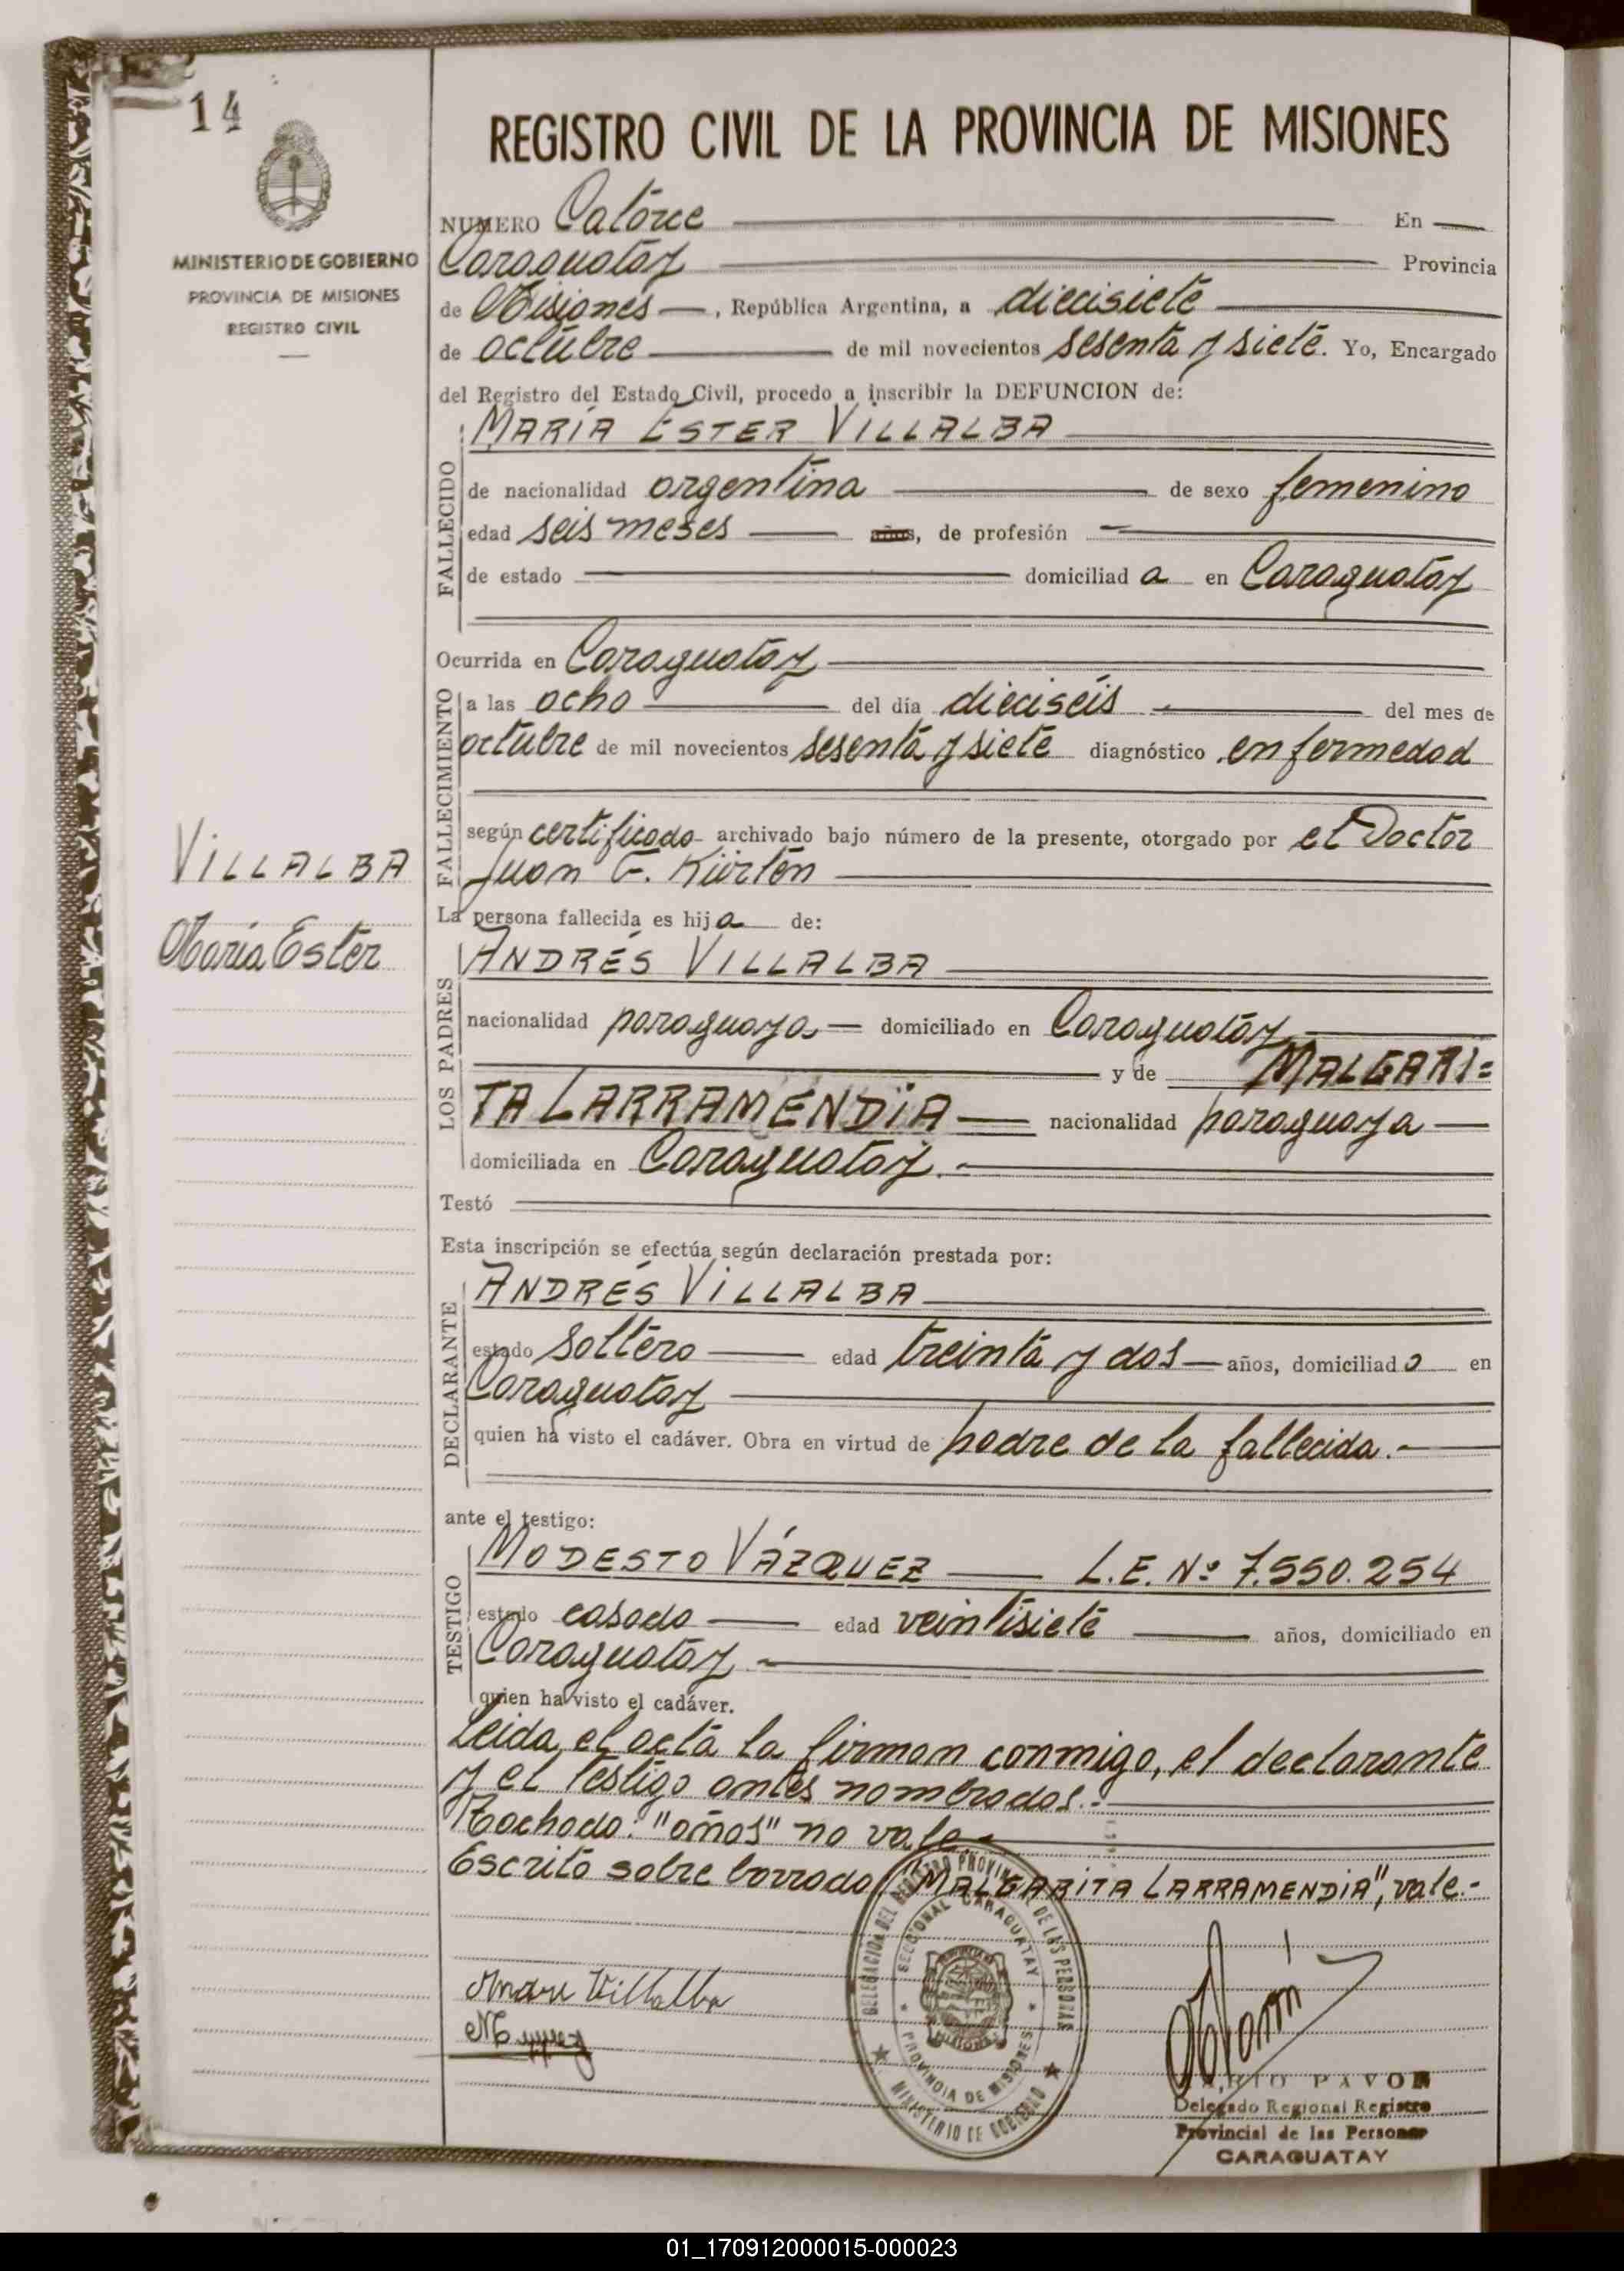 14
MINISTERIO DE GOBIERNO
PROVINCIA DE MISIONES
REGISTRO CIVIL
VILLALBA
María Ester
REGISTRO CIVIL DE LA PROVINCIA DE MISIONES
NUMERO Catorce En
Caraguatay Provincia
de Misiones, República Argentina, a diecisiete
de octubre de mil novecientos sesenta y siete. Yo, Encargado
del Registro del Estado Civil, procedo a inscribir la DEFUNCION de:
MARÍA ESTER VILLALBA
FALLECIDO
de nacionalidad argentina de sexo femenino
edad seis meses años, de profesión
de estado domiciliad a en Caraguatay
Ocurrida en Caraguatay
FALLECIMIENTO
a las ocho del día dieciseis del mes de
octubre de mil novecientos sesenta y siete diagnóstico enfermedad
según certificado archivado bajo número de la presente, otorgado por el Doctor
Juan G. Kürten
La persona fallecida es hija de:
LOS PADRES
ANDRÉS VILLALBA
nacionalidad paraguaya domiciliado en Caraguatay
y de MALGARI=
TA LARRAMENDIA nacionalidad paraguaya
domiciliada en Caraguatay.-
Testó
Esta inscripción se efectúa según declaración prestada por:
DECLARANTE
ANDRÉS VILLALBA
estado soltero edad treinta y dos años, domiciliado en
Caraguatay
quien ha visto el cadáver. Obra en virtud de padre de la fallecida.-
ante el testigo:
TESTIGO
MODESTO VÁZQUEZ L.E. Nº 7.550.254
estado casado edad veintisiete años, domiciliado en
Caraguatay
quien ha visto el cadáver.
Leida el acta la firman conmigo, el declarante
y el testigo antes nombrados.-
Tachado: "años" no vale-
Escrito sobre borrado "MALGARITA LARRAMENDIA", vale.-
DELEGACION DEL REGISTRO PROVINCIAL DE LAS PERSONAS
SECCIONAL CARAGUATAY
PROVINCIA DE MISIONES
MINISTERIO DE GOBIERNO
Andre Villalba
PAVON
Delegado Regional Registro
Provincial de las Personas
CARAGUATAY
01_170912000015-000023